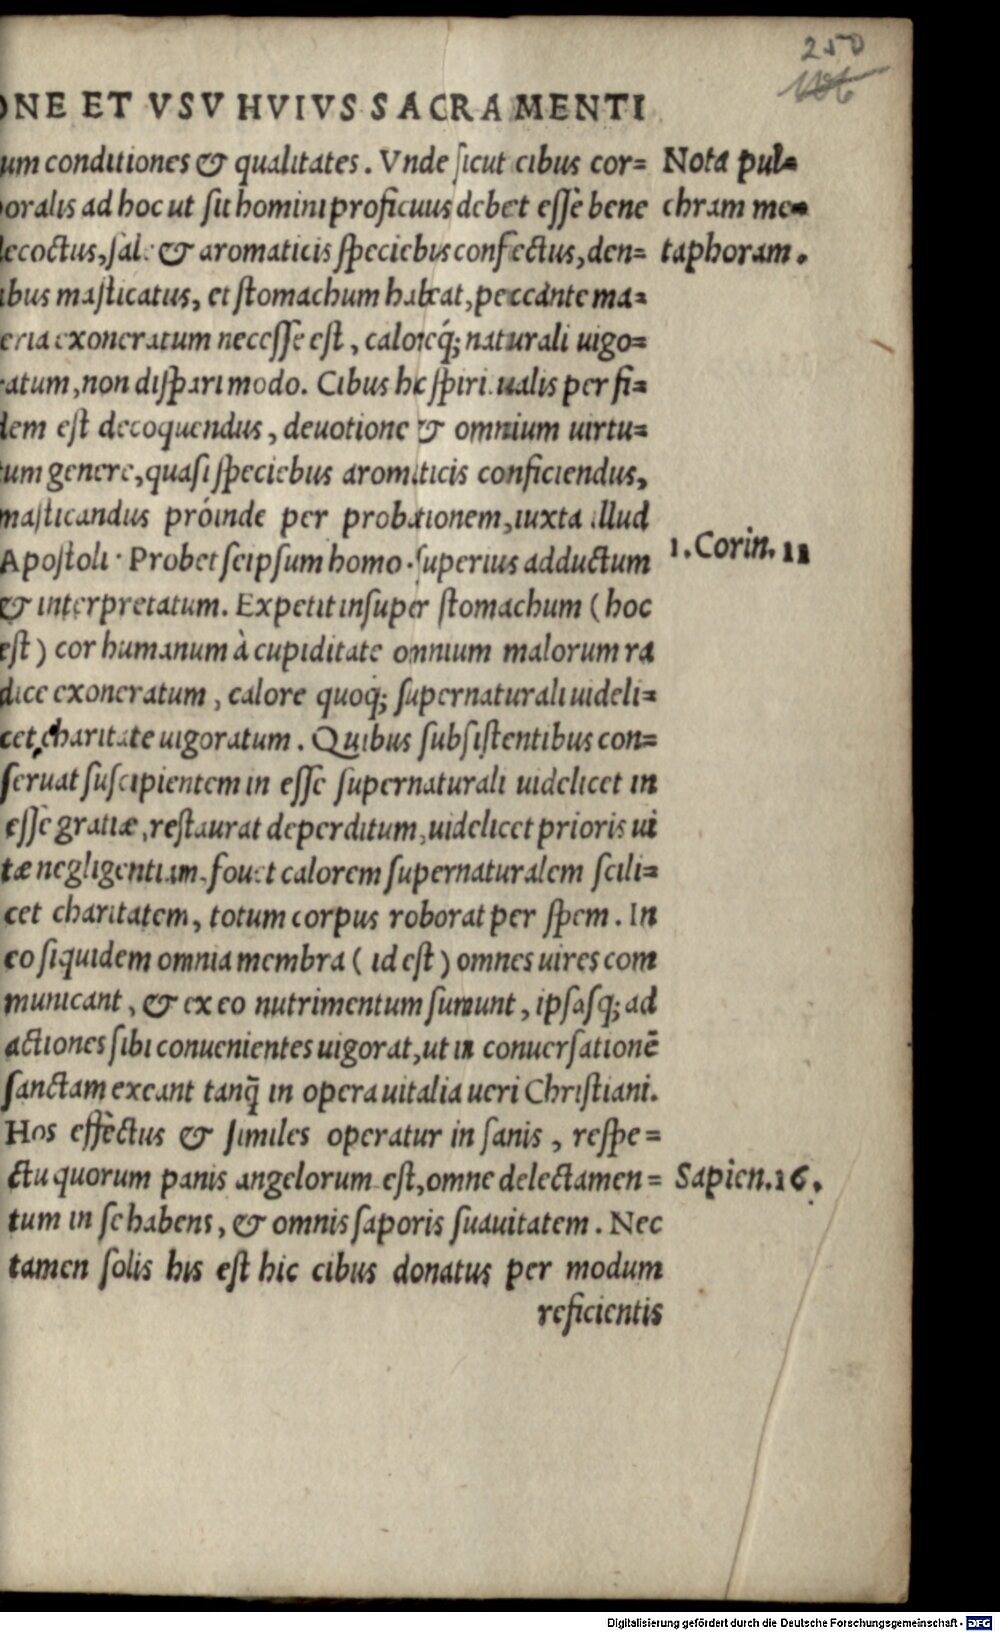 250
ONE ET VSV HVIVS SACRAMENTI
um conditiones & qualitates. Vnde sicut cibus cor=
oralis ad hoc ut sit homini proficuus debet esse bene
ecoctus, sale & aromaticis speciebus confectus, den=
ibus masticatus, et stomachum habeat, peccante ma=
eria exoneratum necesse est, caloreq́; naturali uigo=
ratum, non dispari modo. Cibus hic spiritualis per fi=
dem est decoquendus, deuotione & omnium uirtu=
tum genere, quasi speciebus aromaticis conficiendus,
masticandus próinde per probationem, iuxta illud
Apostoli. Probet seipsum homo. superius adductum
& interpretatum. Expetit insuper stomachum (hoc
est) cor humanum à cupiditate omnium malorum ra
dice exoneratum, calore quoq́; supernaturali uideli=
cet, charitate uigoratum. Quibus subsistentibus con=
seruat suscipientem in esse supernaturali uidelicet in
esse gratiæ, restaurat deperditum, uidelicet prioris ui
tæ negligentiam, fouet calorem supernaturalem scili=
cet charitatem, totum corpus roborat per spem. In
eo siquidem omnia membra (id est) omnes uires com
municant, & ex eo nutrimentum sumunt, ipsasq́; ad
actiones sibi conuenientes uigorat, ut in conuersationē
sanctam exeant tanq̄ in opera uitalia ueri Christiani.
Hos effectus & similes operatur in sanis, respe=
ctu quorum panis angelorum est, omne delectamen=
tum in se habens, & omnis saporis suauitatem. Nec
tamen solis his est hic cibus donatus per modum
reficientis
Nota pul=
chram me=
taphoram.
1. Corin. 11
Sapien. 16.
Digitalisierung gefördert durch die Deutsche Forschungsgemeinschaft - DFG